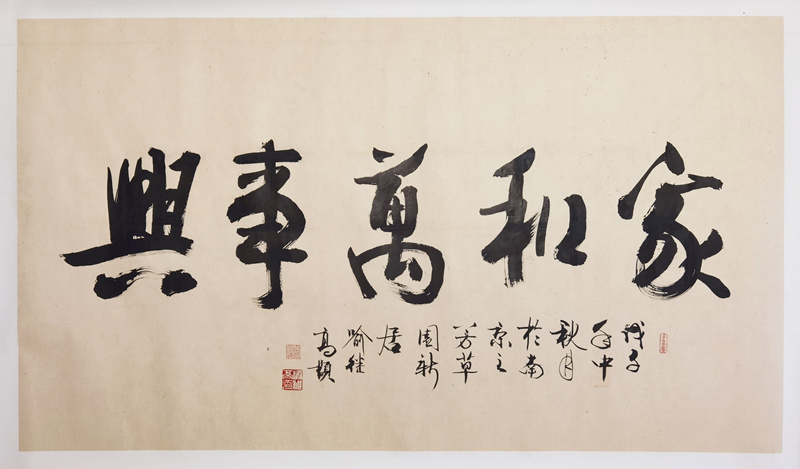 家和萬事興
戊子
年中
秋月
於南
京之
芳草
園新
居
喻继
高題